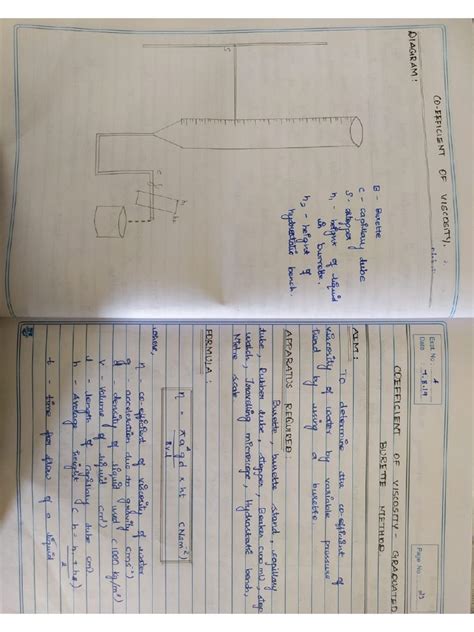 CO-EFFICIENT OF VISCOSITY.
DIAGRAM:
S
C
h₂
B - Burette
C - capillary tube
S - stopper
h₁ - height of liquid
in burette.
h₂ - height of
hydrostatic bench.
Expt. No. 1
Date 7.8.19
Page No. 23
COEFFICIENT OF VISCOSITY - GRADUATED
BURETTE METHOD
AIM:
To determine the co-efficient of
viscosity of water by variable pressure
head by using a burette.
APPARATUS REQUIRED:
Burette, burette stand, capillary
tube, Rubber tube, stopper, Beaker (100 ml), stop
watch, Travelling microscope, Hydrostatic bench,
Metre scale
FORMULA:
η = πa⁴gd / 8vl × ht (Nsm⁻²)
where,
η - co-efficient of viscosity of water
g - acceleration due to gravity (ms⁻²)
d - density of liquid used (1000 kg/m³)
v - Volume of liquid (m³)
l - length of capillary tube (m)
h - Average height (h =
t - time for flow of a liquid